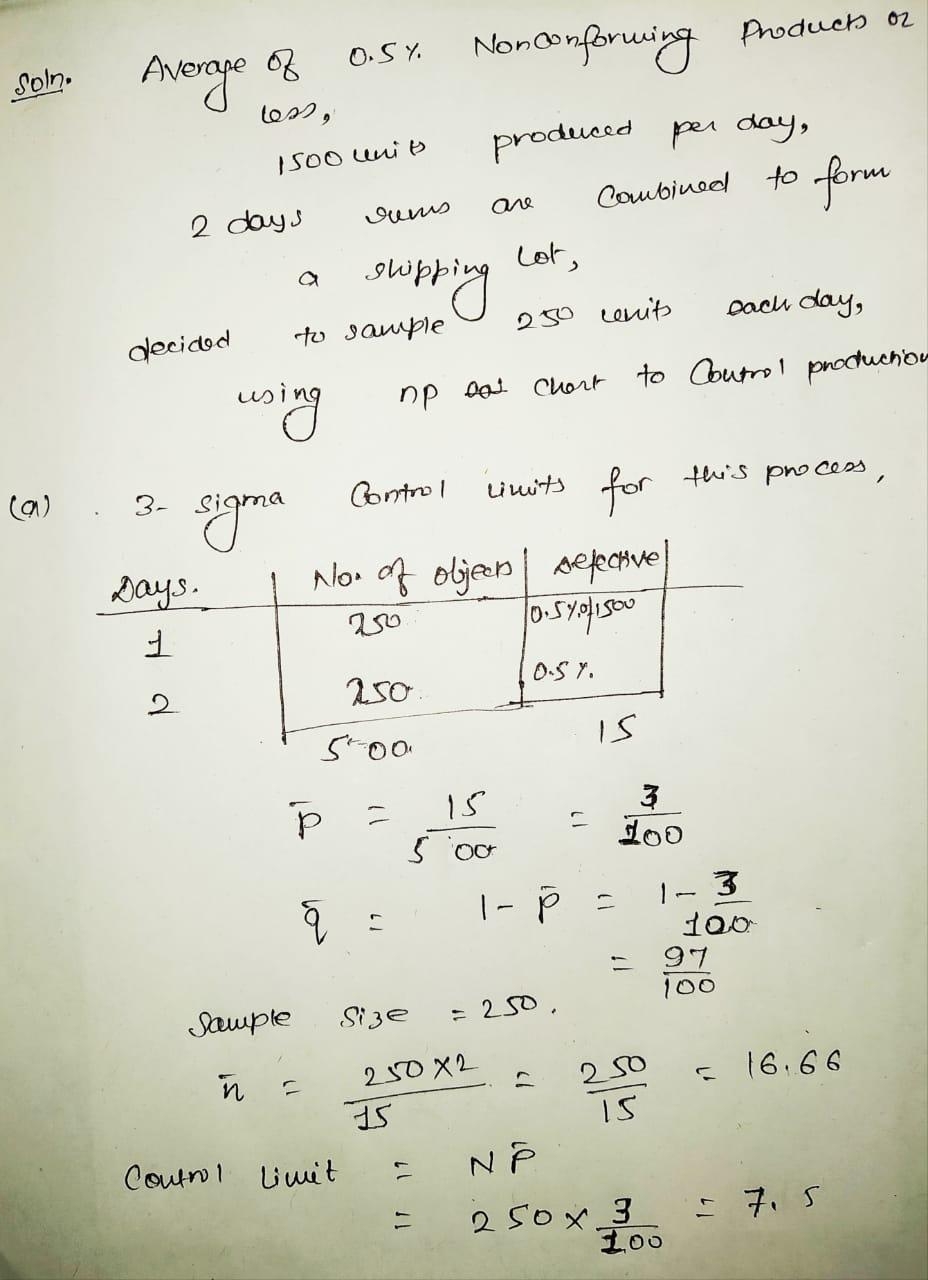 Soln. Average of 0.5% Nonconforming Products or
less,
1500 units produced per day,
2 days runs are Combined to form
a shipping Lot,
decided to sample 250 units each day,
using np chart to Control production
(a) . 3- sigma Control limits for this process,
Days. No. of objects defective
1 250 0.5% of 1500
2 250 0.5%
500 15
p̄ = 15/500 = 3/100
q̄ = 1-p̄ = 1-3/100
= 97/100
Sample Size = 250.
n̄ = 250X2/15 = 250/15 = 16.66
Control Limit = NP̄
= 250x3/100 = 7.5